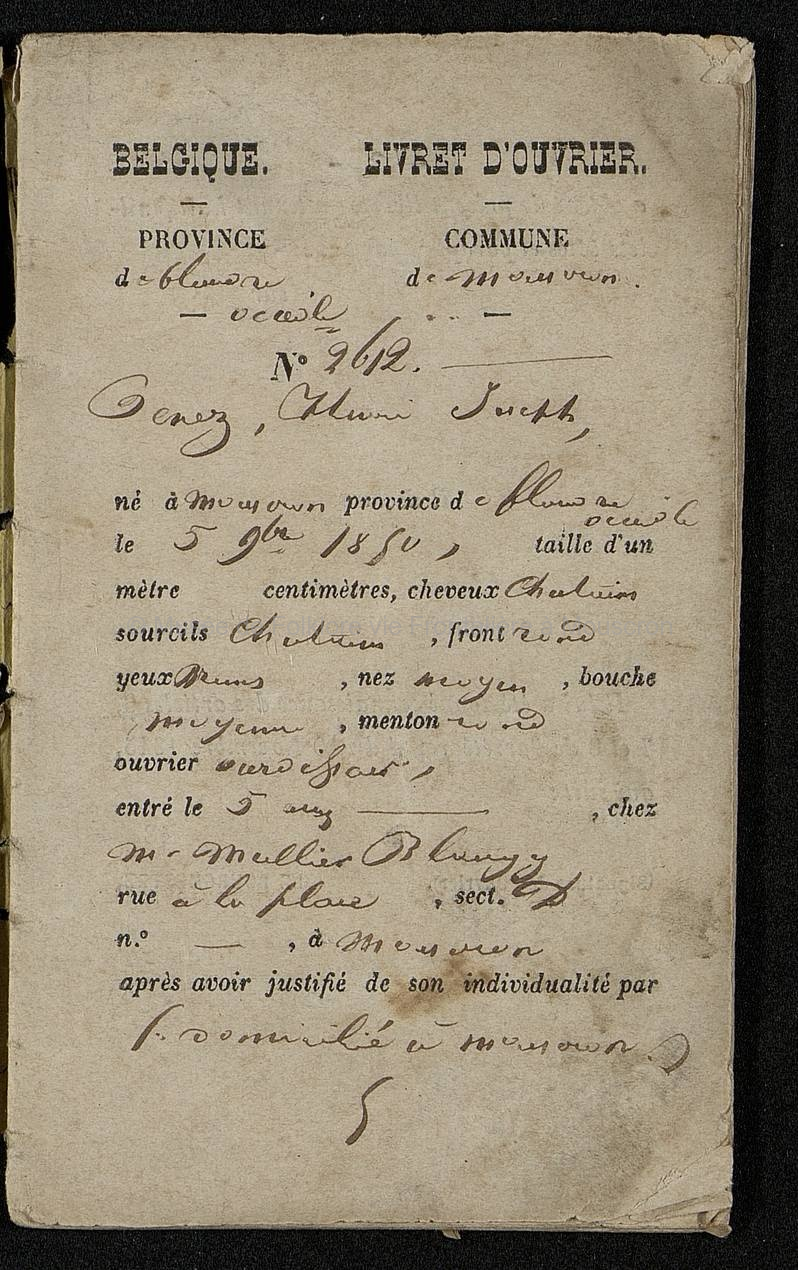 BELGIQUE. LIVRET D'OUVRIER.
PROVINCE COMMUNE
de flandre de Mouscron.
occid.le
N° 2612.
Henri Joseph,
né à Mouscron province de flandre
occid.le
le 5 9bre 1850, taille d'un
mètre centimètres, cheveux Chatains
sourcils Chatains, front rond
yeux, nez moyen, bouche
moyenne, menton rond
ouvrier ourdisseur,
entré le 5, chez
Mr Mullier
rue à la place, sect. D
n.° —, à Mouscron
après avoir justifié de son individualité par
domicilié à Mouscron.